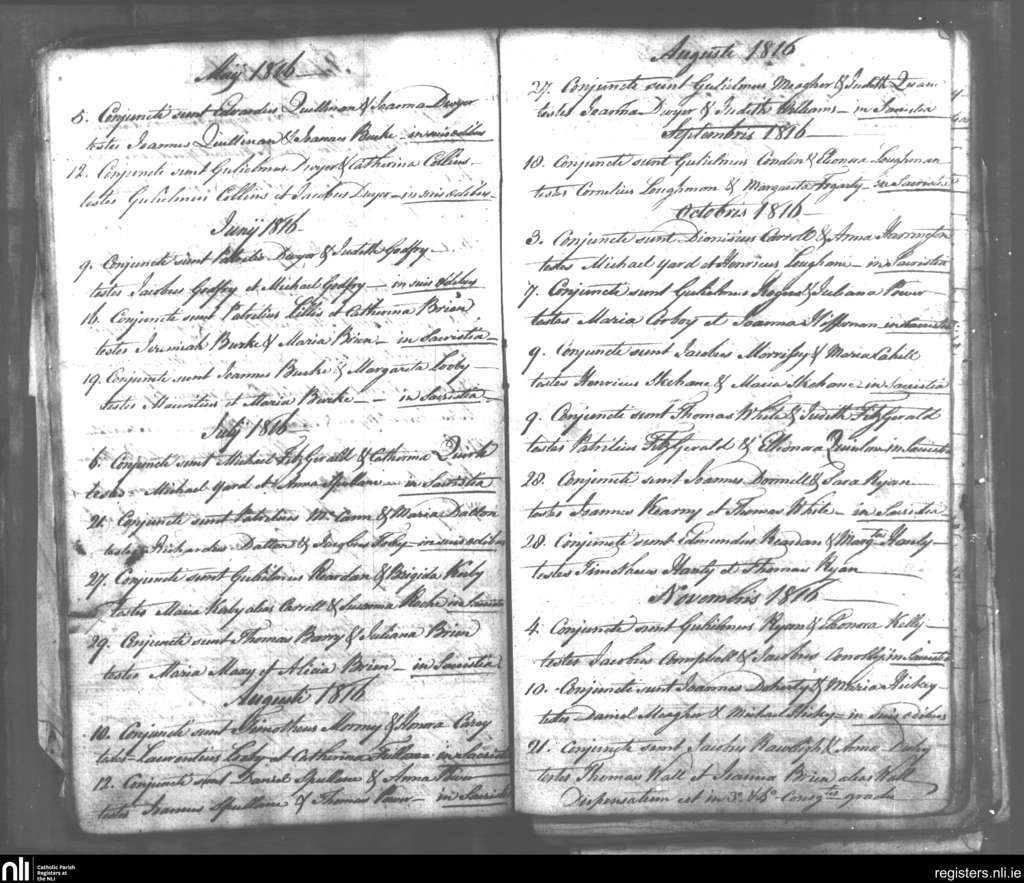 Maij 1816
5. Conjuncti sunt Edvardus Quillinan & Joanna Dwyer
testes Joannes Quillinan & Joannes Burke – in suis edibus
12. Conjuncti sunt Gulielmus Dwyer & Catherina Collins –
testes Gulielmus Collins et Jacobus Dwyer – in suis edibus –
Junij 1816 –
9. Conjuncti sunt Dwyer & Judith Godfry
testes Jacobus Godfry et Michael Godfry – in suis edibus
16. Conjuncti sunt Patritius Lillis et Catherina Brien
testes Jeremiah Burke & Maria Brien – in Sacristia –
19. Conjuncti sunt Joannes Burke & Margarita Looby –
testes Mauritius et Maria Burke – – in Sacristia –
Julij 1816 –
6. Conjuncti sunt Michael FitzGerald & Catherina Quirk
testes Michael Yard et Anna Spillane – in Sacristia
21. Conjuncti sunt Patritius McCann & Maria Dalton
testes Richardus Dalton & Foley – in suis edibus
27. Conjuncti sunt Gulielmus Reardan & Brigida Kirby
testes Maria Kirby alias Carroll & Susanna Roche in Sacristia
29. Conjuncti sunt Thomas Barry & Juliana Brien
testes Maria et Alicia Brien – in Sacristia
Augusti 1816
10. Conjuncti sunt Timotheus & Carey
testes Laurentius et Catherina in Sacristia
12. Conjuncti sunt Daniel Spillane & Anna Power
testes Joannes Spillane & Thomas Power – in Sacristia
Augusti 1816
27. Conjuncti sunt Gulielmus Meagher & Judith
testes Joanna Dwyer & Judith Williams – in Sacristia
Septembris 1816 –
18. Conjuncti sunt Gulielmus Condon & Eleonora Loughman
testes Cornelius Loughman & Margarita Fogarty – in Sacristia
Octobris 1816 –
3. Conjuncti sunt Dionisius Carroll & Anna Harrington
testes Michael Yard et Henricus – in Sacristia
7. Conjuncti sunt Gulielmus Rogers & Juliana Power
testes Maria Corboy et Joanna Heffernan in Sacristia
9. Conjuncti sunt Jacobus Morrissy & Maria Cahill
testes Henricus Skehane & Maria Skehane – in Sacristia
9. Conjuncti sunt Thomas White & Judith FitzGerald
testes Patritius FitzGerald & Elleonora Quinlan in Sacristia
28. Conjuncti sunt Joannes Donnell & Sara Ryan –
testes Joannes Kearny et Thomas White – in Sacristia
28. Conjuncti sunt Edmundus Reardan & Margta Hanly –
testes Timotheus Hanly et Thomas Ryan
Novembris 1816 –
4. Conjuncti sunt Gulielmus Ryan & Eleonora Kelly –
testes Jacobus Campbell & Jacobus Conolly in Sacristia
10. Conjuncti sunt Joannes Doherty & Maria Hickey –
testes Daniel Meagher & Michael Hickey – in suis edibus
21. Conjuncti sunt Jacobus Rawleigh & Anna
testes Thomas Wall et Joanna Brien alias Wall
Dispensatum est in 3o & 4o Consgtis gradu
nli
Catholic Parish
Registers at
the NLI
registers.nli.ie